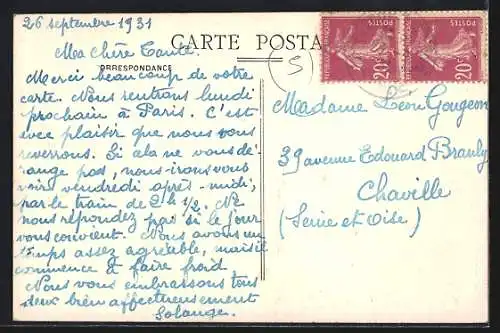 26 septembre 1931
CARTE POSTA
CORRESPONDANCE
Ma chère Tante.
Merci beaucoup de votre
carte. Nous rentrons lundi
prochain à Paris. C'est
avec plaisir que nous vous
reverrons. Si cela ne vous dé
range pas, nous irons vous
voir vendredi après-midi,
par le train de 2h 1/2. Ne
nous répondez pas si le jour
vous convient. Nous avons un
temps assez agréable, mais il
commence à faire froid.
Nous vous embrassons tous
deux bien affectueusement
Solange.
S
REPUBLIQUE FRANÇAISE
POSTES
20c
REPUBLIQUE FRANÇAISE
POSTES
20c
Madame Léon Gougeon
39 avenue Edouard Branly
Chaville
(Seine et Oise)